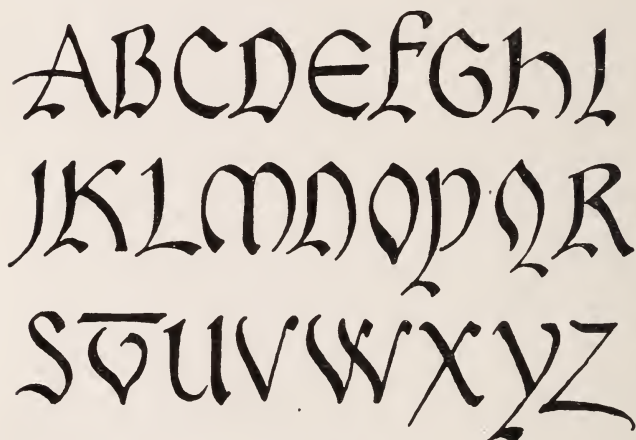 ABCDEFGHI
JKLMNOPQR
STUVWXYZ